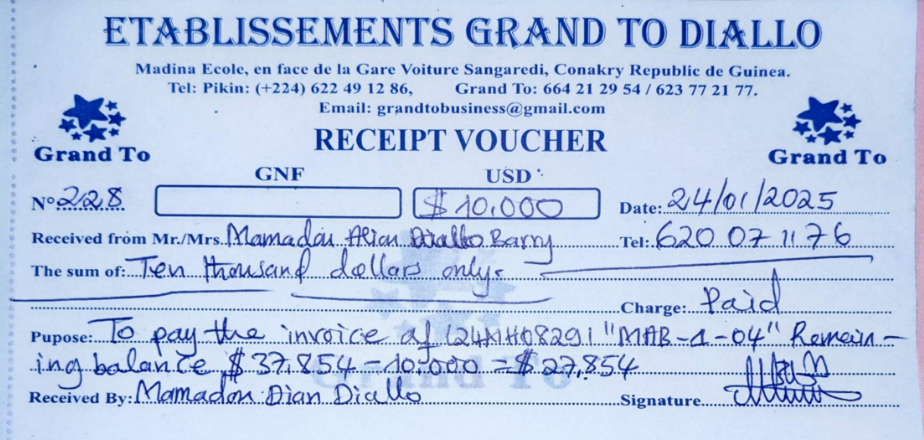 ETABLISSEMENTS GRAND TO DIALLO
Madina Ecole, en face de la Gare Voiture Sangaredi, Conakry Republic de Guinea.
Tel: Pikin: (+224) 622 49 12 86, Grand To: 664 21 29 54 / 623 77 21 77.
Email: grandtobusiness@gmail.com
Grand To RECEIPT VOUCHER Grand To
GNF USD
N° 228 $ 10.000 Date: 24/01/2025
Received from Mr./Mrs. Mamadou Diallo Barry Tel: 620 07 11 76
The sum of: Ten thousand dollars only.
Charge: Paid
Pupose: To pay the invoice of "MAB-1-04" Remain-
ing balance $ 37.854 - 10.000 = $ 27,854
Received By: Mamadou Dian Diallo Signature